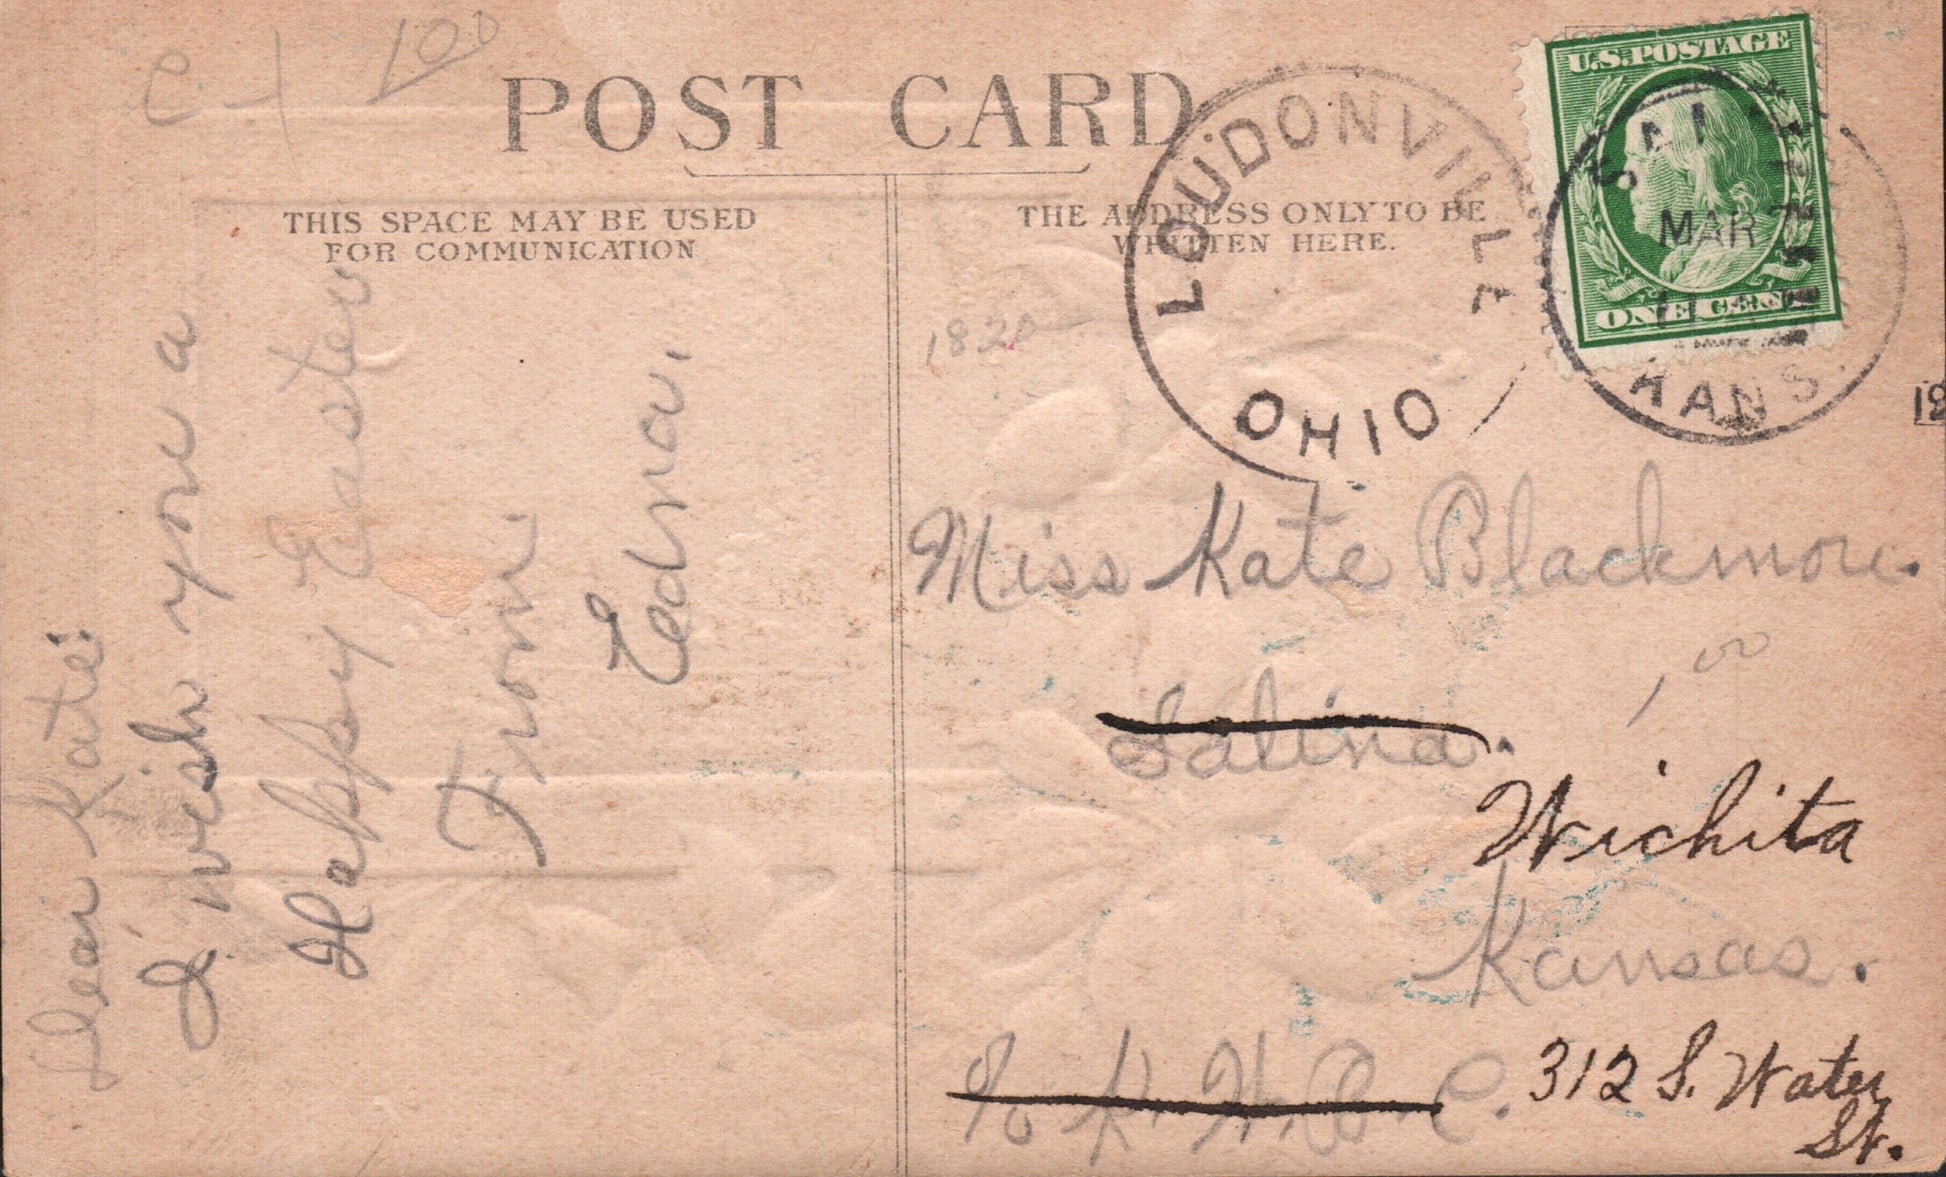 C. 1 10 00
POST CARD
THIS SPACE MAY BE USED
FOR COMMUNICATION
THE ADDRESS ONLY TO BE
WRITTEN HERE.
LOUDONVILLE
OHIO
U.S. POSTAGE
ONE CENT
SALI
MAR
KANS.
1820
Dear Katie:
I wish you a
Happy Easter
From.
Edna.
Miss Kate Blackmore.
Salina.
1 00
Wichita
Kansas.
312 S. Water
St.